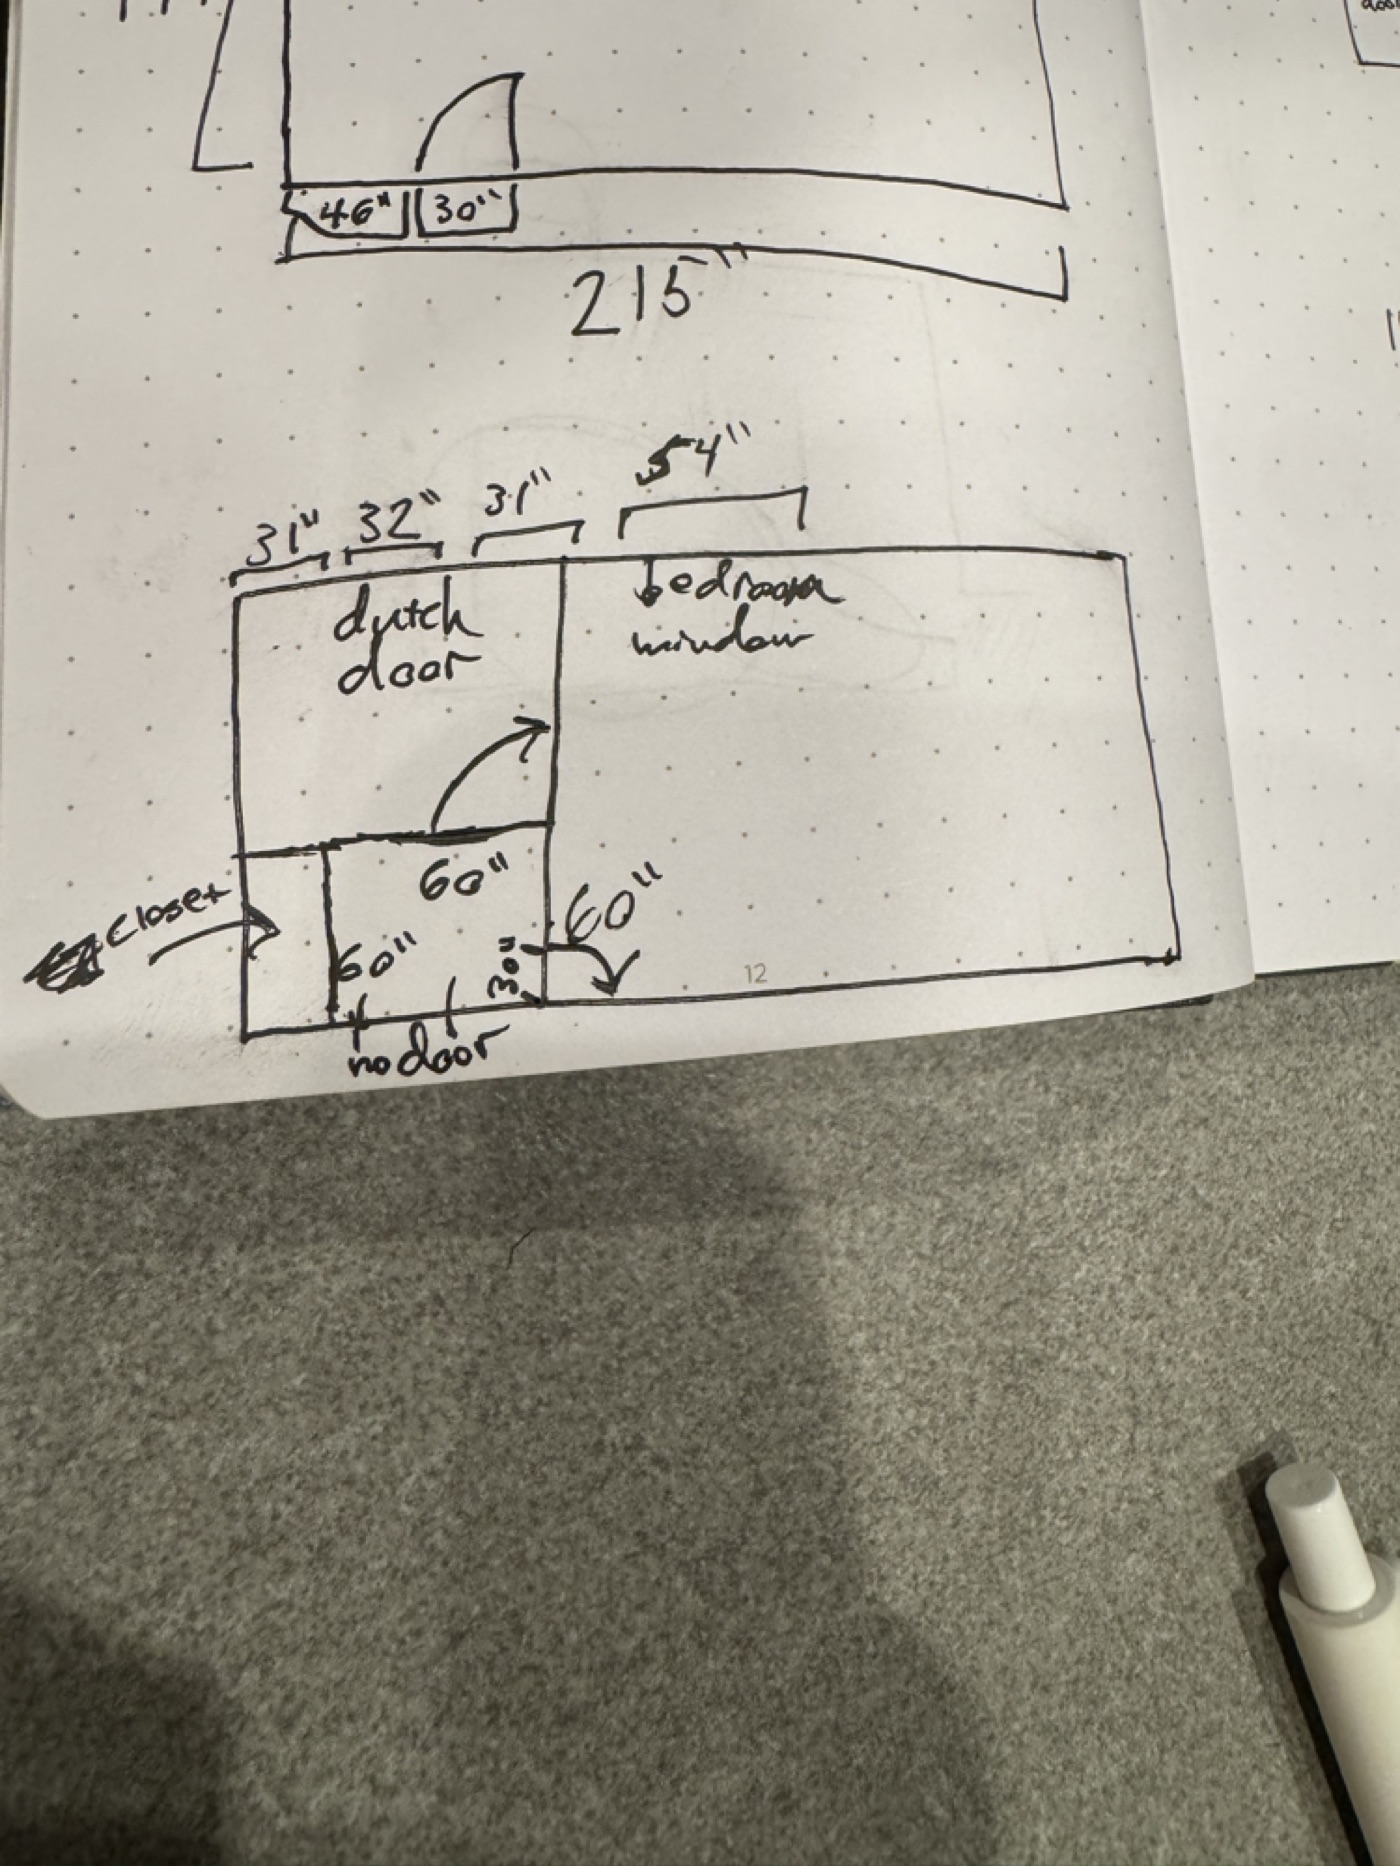 46" 30"
215"
31" 32" 31" 54"
dutch
door
bedroom
window
60"
closet
60"
60"
30"
no door
12